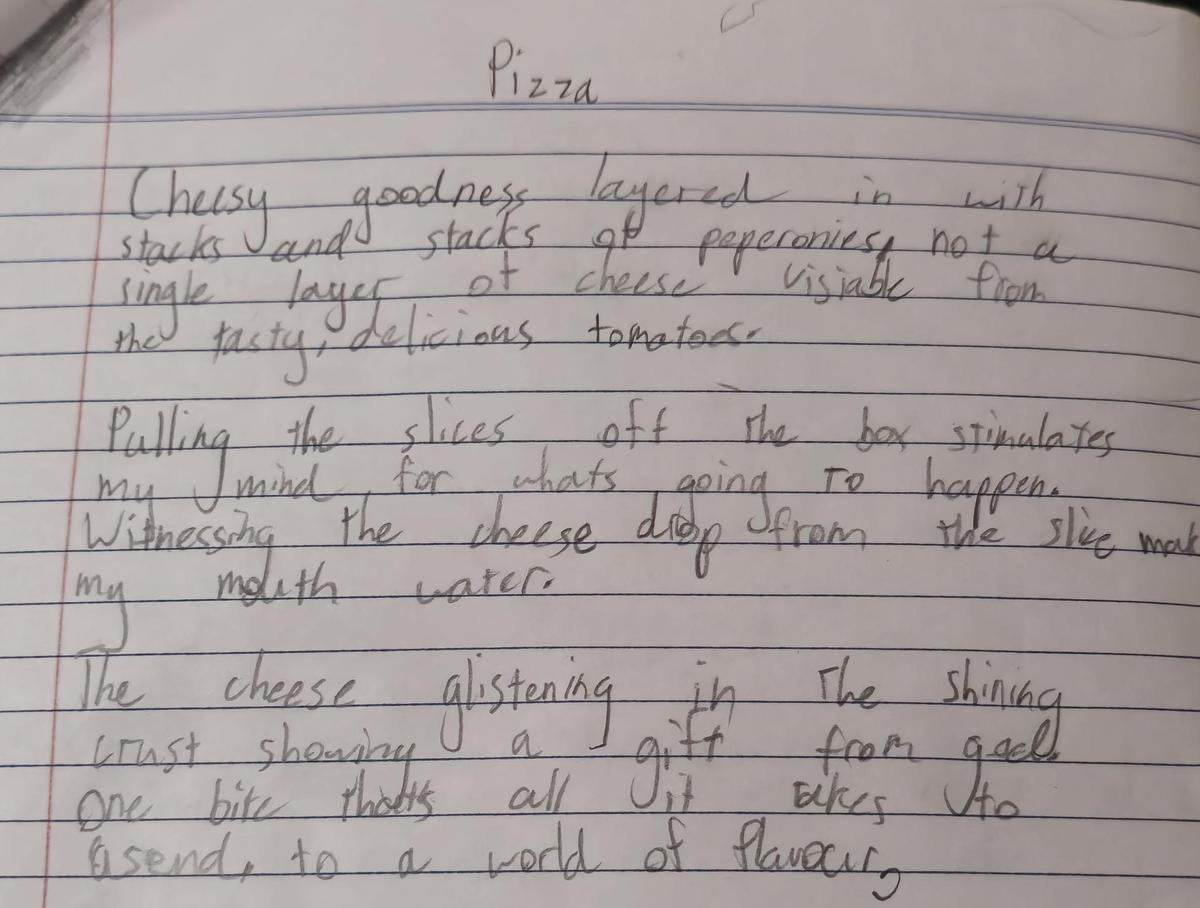 Pizza
Cheesy goodness layered in with
stacks and stacks of peperonies, not a
single layer of cheese visiable from
the tasty, delicious tomatoes.
Pulling the slices off the box stimulates
my mind for whats going to happen.
Witnessing the cheese drop from the slice mak
my mouth water.
The cheese glistening in the shining
crust showing a gift from god.
One bite thats all it takes to
asend, to a world of flavour,